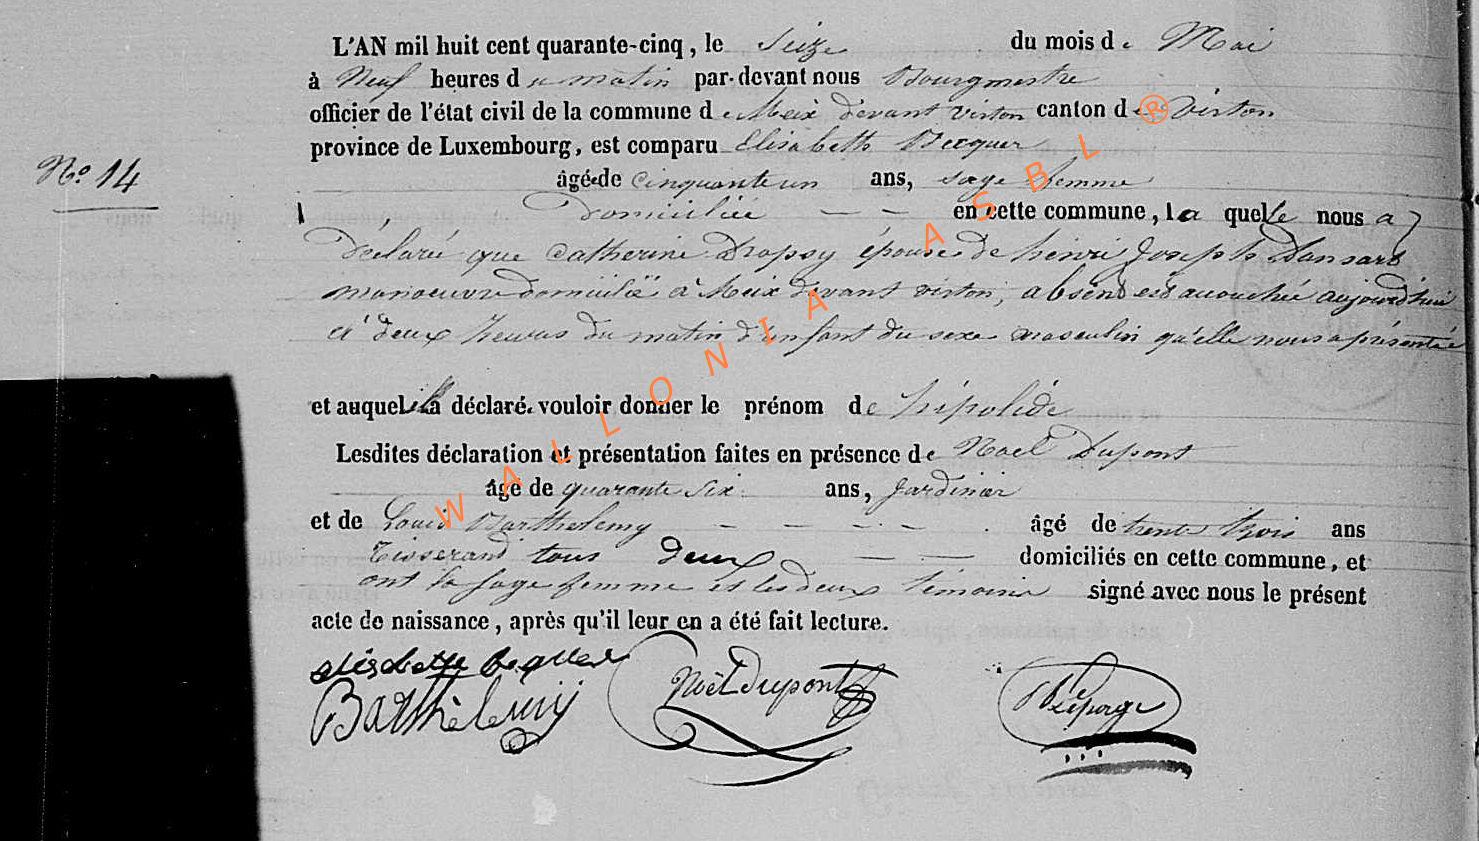 L'AN mil huit cent quarante-cinq, le Seize du mois de Mai
à Neuf heures du matin par-devant nous Bourgmestre
officier de l'état civil de la commune de Meix devant virton canton de Virton
province de Luxembourg, est comparu Elisabeth Becquer
N.o 14
âgée de cinquante un ans, sage femme
Domiciliée — — en cette commune, la quelle nous a
Déclaré que Catherine Dropsy épouse de henri Joseph Dansart
manoeuvre domicilié à Meix devant virton, absent est accouchée aujourd'hui
à deux heures du matin d'enfant du sexe masculin qu'elle nous a présenté
et auquel elle a déclaré vouloir donner le prénom de hipolide
Lesdites déclaration et présentation faites en présence de Noel Dupont
âgé de quarante six ans, Jardinier
et de Louis Barthelemy — — — — âgé de trente trois ans
Tisserand tous deux — — domiciliés en cette commune, et
ont la sage femme et les deux témoins signé avec nous le présent
acte de naissance, après qu'il leur en a été fait lecture.
Barthèlemy Noël Dupont
WALLONIA ASBL ®